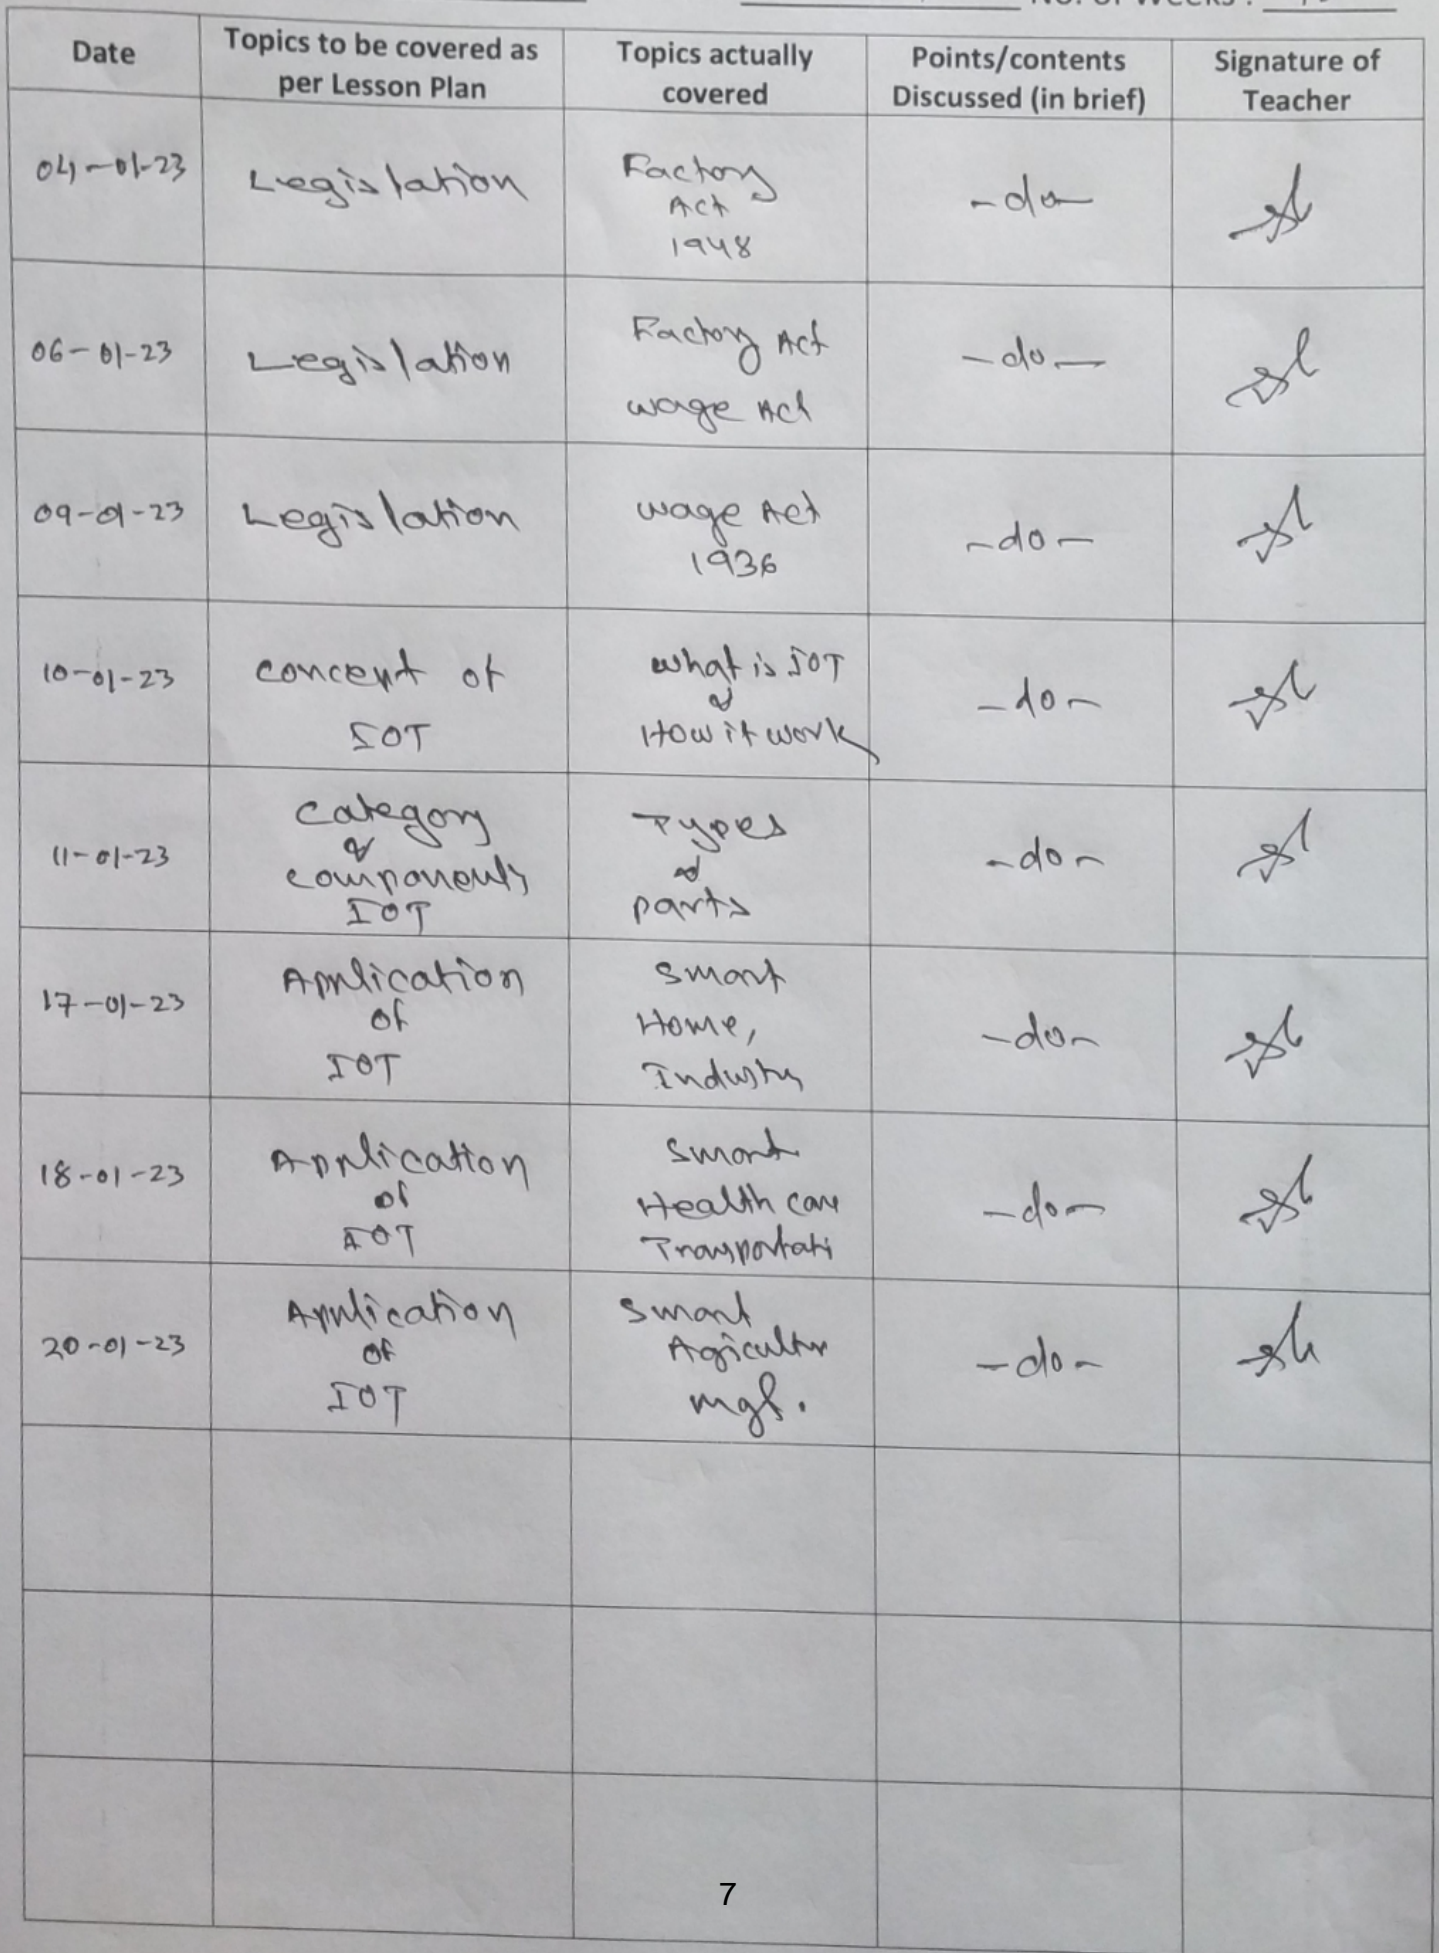 No. of Weeks :
Date
Topics to be covered as
per Lesson Plan
Topics actually
covered
Points/contents
Discussed (in brief)
Signature of
Teacher
04-01-23
Legislation
Factory
Act
1948
-do-
06-01-23
Legislation
Factory Act
wage Act
-do-
09-01-23
Legislation
wage Act
1936
-do-
10-01-23
concept of
IOT
what is IOT
&
How it work
-do-
11-01-23
category
&
components
IOT
Types
&
parts
-do-
17-01-23
Application
of
IOT
Smart
Home,
Industry
-do-
18-01-23
Application
of
IOT
Smart
Health care
Transportati
-do-
20-01-23
Application
of
IOT
Smart
Agricultur
mgt.
-do-
7